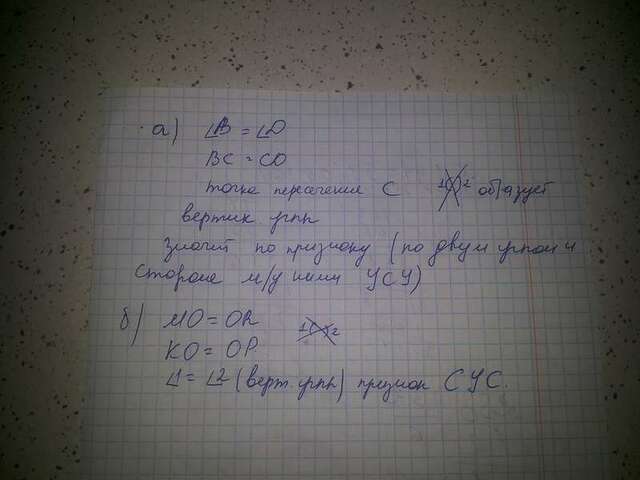 а) ∠B = ∠D
BC = CD
точка пересечения C образует
вертик углы
значит по признаку (по двум углам и
стороне м/у ними УСУ)
б) MO = OR
KO = OP
∠1 = ∠2 (верт углы) признак СУС.